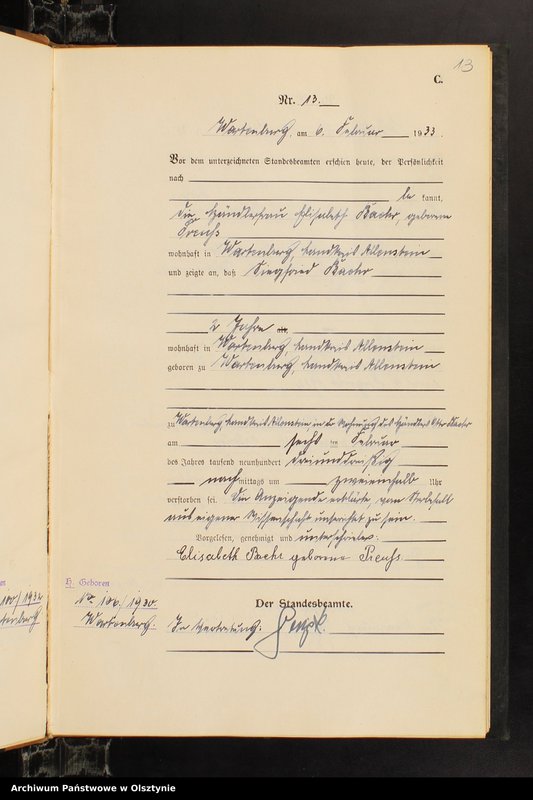 13
C.
Nr. 13.
Wartenburg, am 6. Februar 1933.
Vor dem unterzeichneten Standesbeamten erschien heute, der Persönlichkeit
nach
be kannt,
die Händlerfrau Elisabeth Bachr, geborene
Preuß
wohnhaft in Wartenburg, Landkreis Allenstein
und zeigte an, daß Siegfried Bachr
2 Jahre alt,
wohnhaft in Wartenburg, Landkreis Allenstein
geboren zu Wartenburg, Landkreis Allenstein
zu Wartenburg Landkreis Allenstein in der Wohnung des Händlers Otto Bachr
am sechs ten Februar
des Jahres tausend neunhundert dreiunddreißig
nach mittags um zweieinhalb Uhr
verstorben sei. Die Anzeigende erklärte, vom Sterbefall
aus eigener Wissenschaft unterrichtet zu sein.
Vorgelesen, genehmigt und unterschrieben:
Elisabeth Bachr geborene Preuß
Der Standesbeamte.
In Vertretung.
H. Geboren
No. 106/1930
Wartenburg.
100/1932
Archiwum Państwowe w Olsztynie